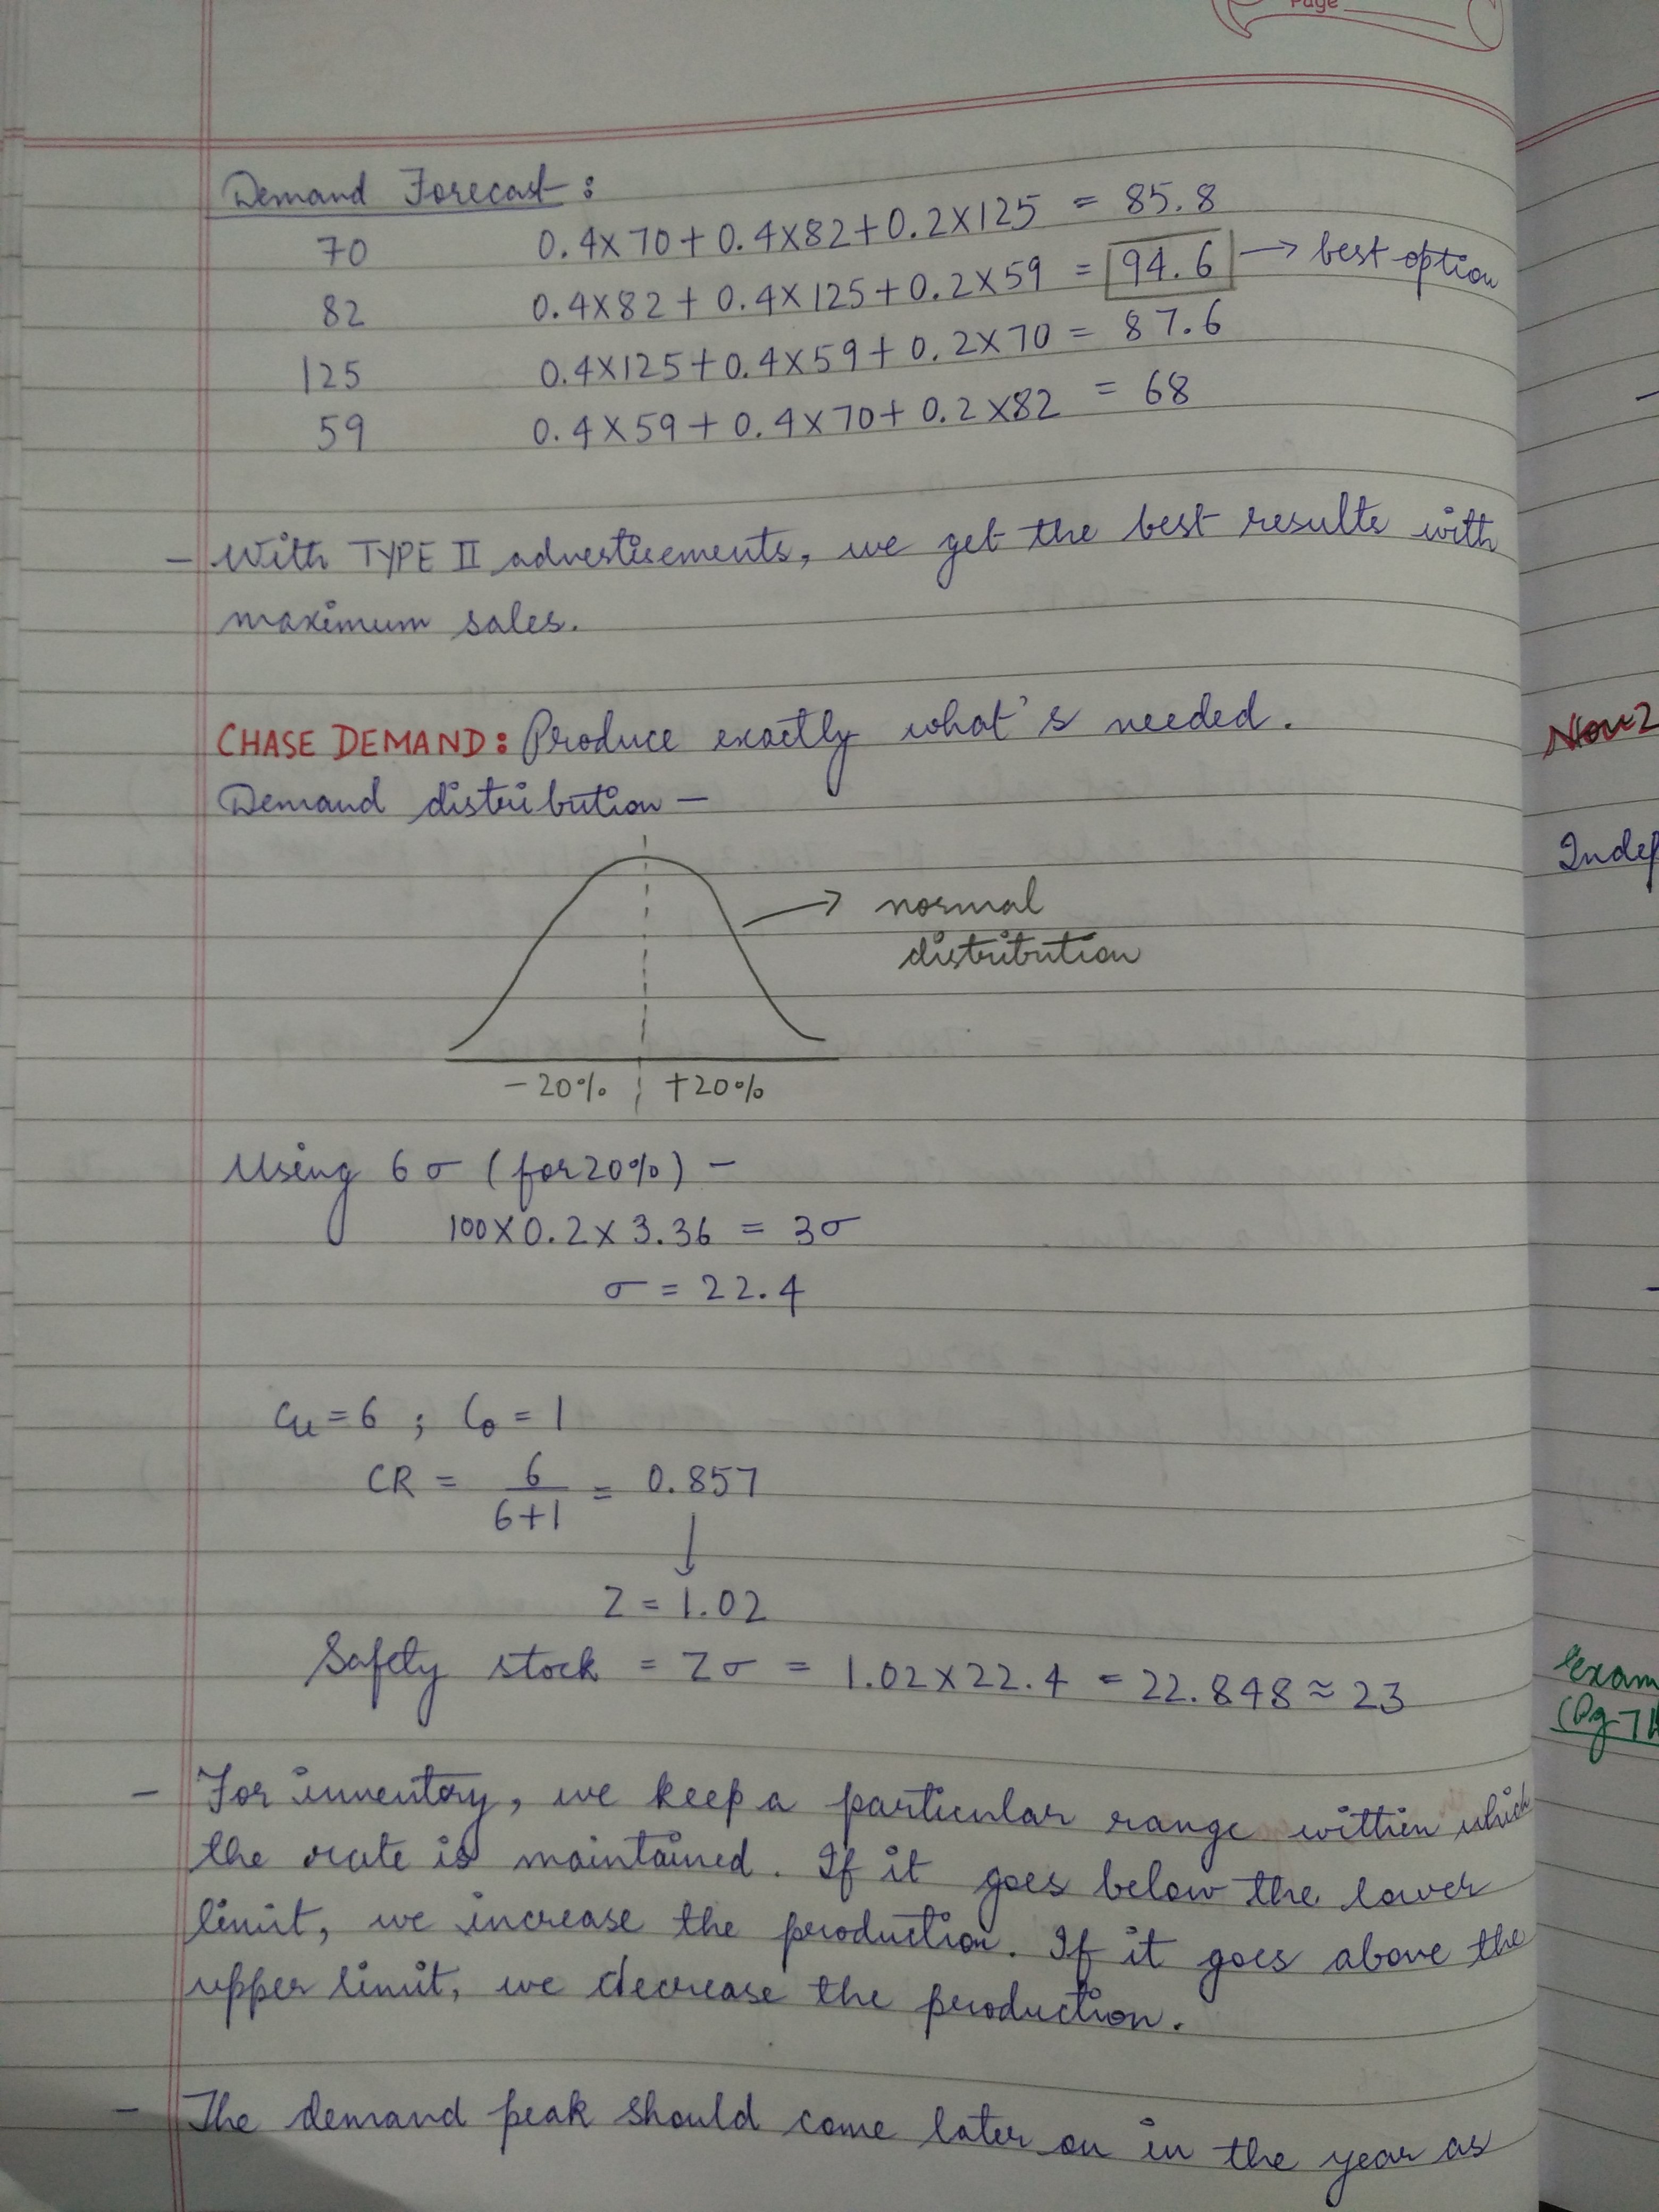 Page
Demand Forecast :
70 0.4×70+0.4×82+0.2×125 = 85.8
82 0.4×82+0.4×125+0.2×59 = 94.6 → best option
125 0.4×125+0.4×59+0.2×70 = 87.6
59 0.4×59+0.4×70+0.2×82 = 68
- With TYPE II advertisements, we get the best results with
maximum sales.
CHASE DEMAND: Produce exactly what's needed.
Demand distribution -
normal
distribution
-20% +20%
Using 6σ (for 20%) -
100×0.2×3.36 = 3σ
σ = 22.4
Cu = 6 ; Co = 1
CR = 6/6+1 = 0.857
↓
Z = 1.02
Safety stock = Zσ = 1.02×22.4 = 22.848 ≈ 23
- For inventory, we keep a particular range within which
the rate is maintained. If it goes below the lower
limit, we increase the production. If it goes above the
upper limit, we decrease the production.
- The demand peak should come later on in the year as
Indep
exam